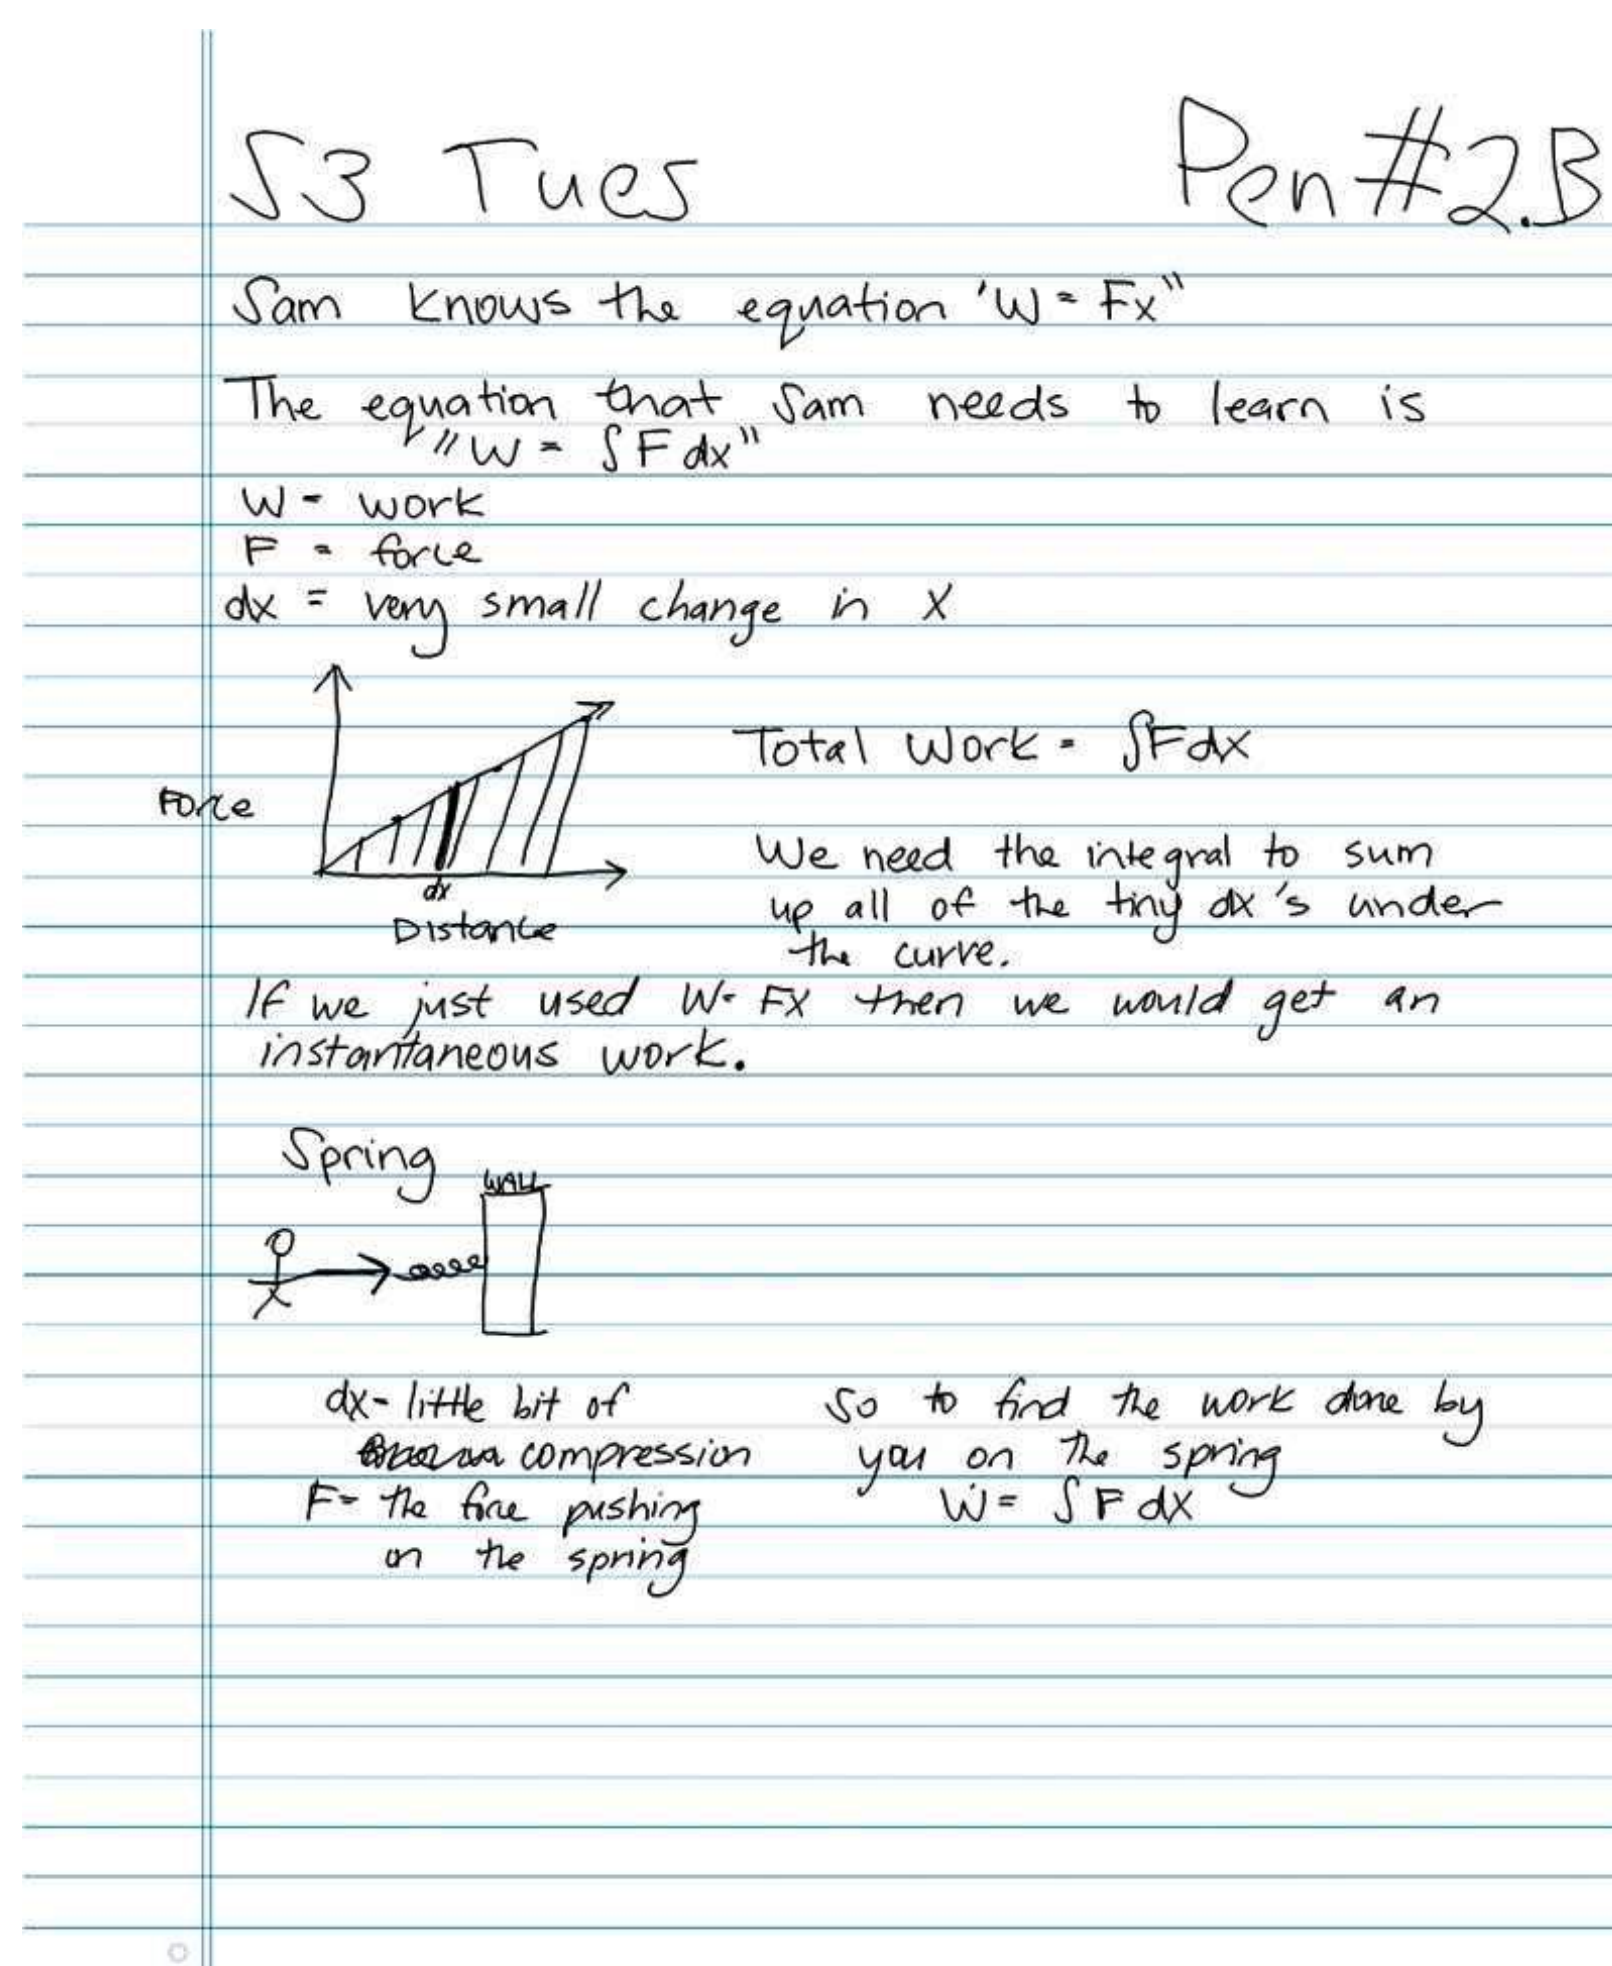 S3 Tues Pen#2.B
Sam knows the equation 'W = Fx"
The equation that Sam needs to learn is
"W = ∫F dx"
W = work
F = force
dx = very small change in x
Force
dx
Distance
Total Work = ∫Fdx
We need the integral to sum
up all of the tiny dx's under
the curve.
If we just used W= FX then we would get an
instantaneous work.
Spring
WALL
dx- little bit of
compression
F= the force pushing
on the spring
So to find the work done by
you on the spring
W = ∫ F dx